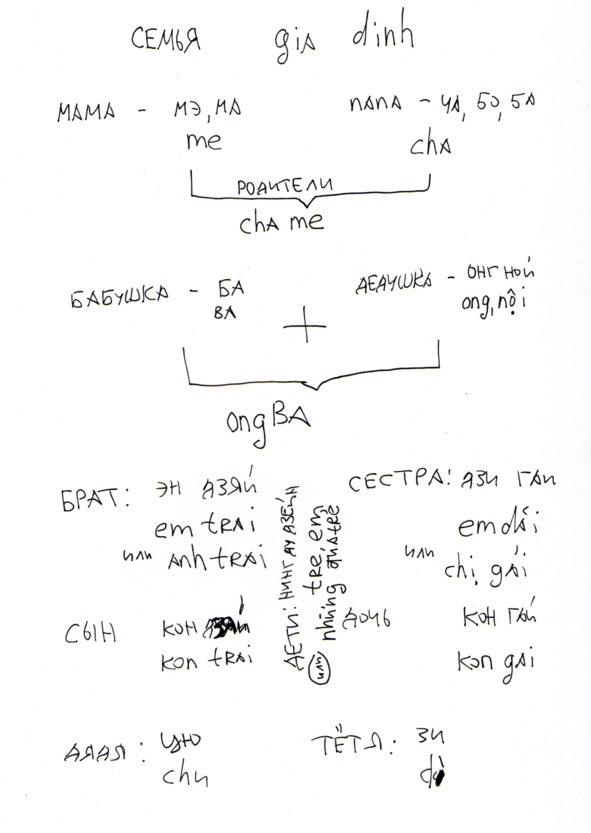 СЕМЬЯ gia dinh
МАМА - МЭ, МА ПАПА - ЧА, БО, БА
me cha
РОДИТЕЛИ
cha me
БАБУШКА - БА ДЕДУШКА - ОНГ НОЙ
BA ong, nội
+
ong BA
БРАТ: ЭН ДЗЯЙ СЕСТРА: ДЗИ ГАИ
em trai em dái
или anh trai или chị gái
ДЕТИ: НИНГ ДУ ДЗЕЙН
tre, em
или những đứa tré
СЫН КОН ДЗЯЙ ДОЧЬ КОН ГАЙ
kon trai kon gai
ДЯДЯ: ЧЮ ТЁТЯ: ЗИ
chu dì